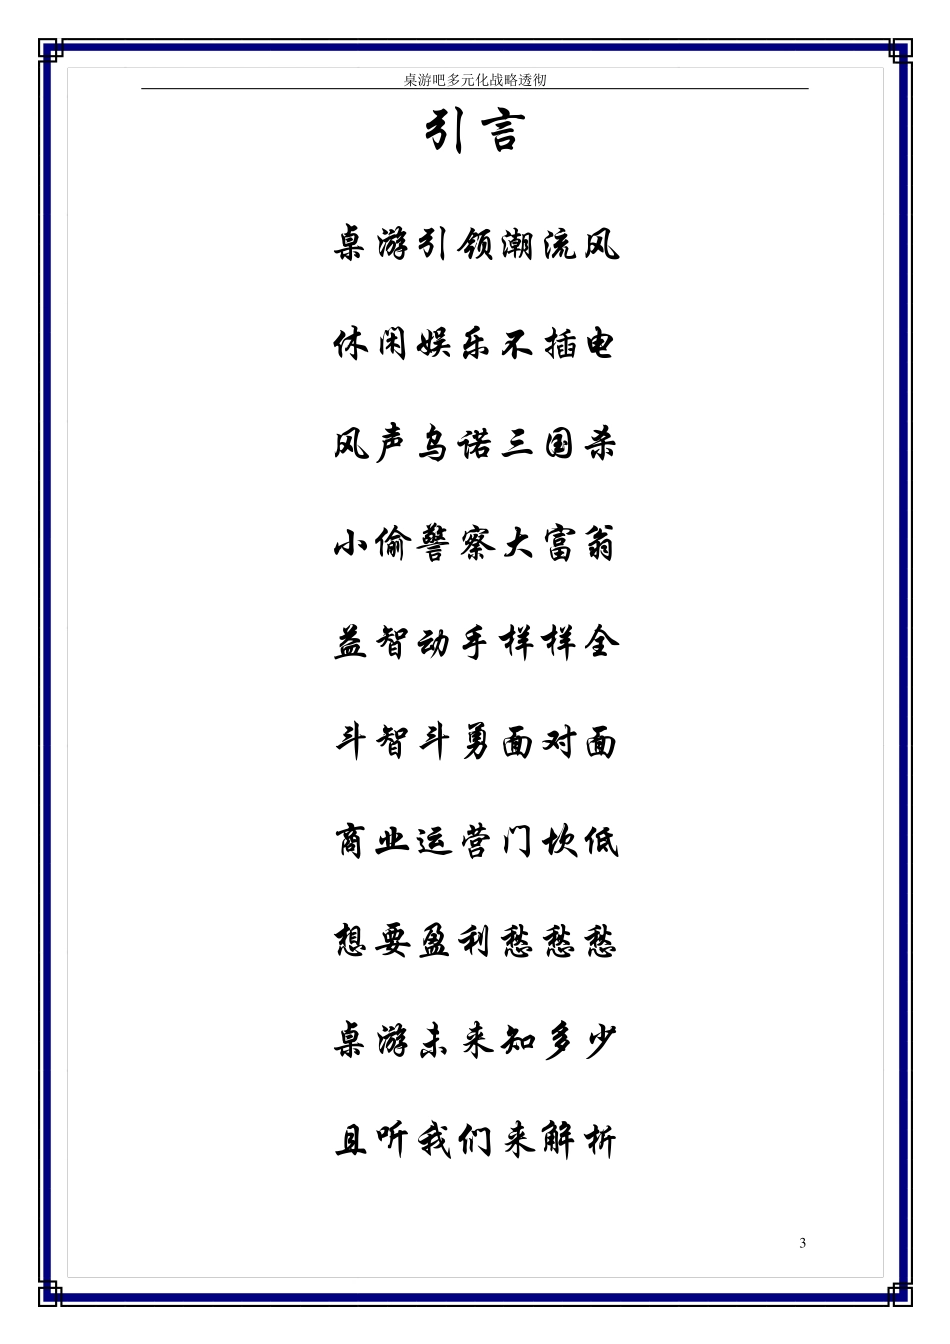 桌游吧多元化战略透彻
引言
桌游引领潮流风
休闲娱乐不插电
风声乌诺三国杀
小偷警察大富翁
益智动手样样全
斗智斗勇面对面
商业运营门坎低
想要盈利愁愁愁
桌游未来知多少
且听我们来解析
3